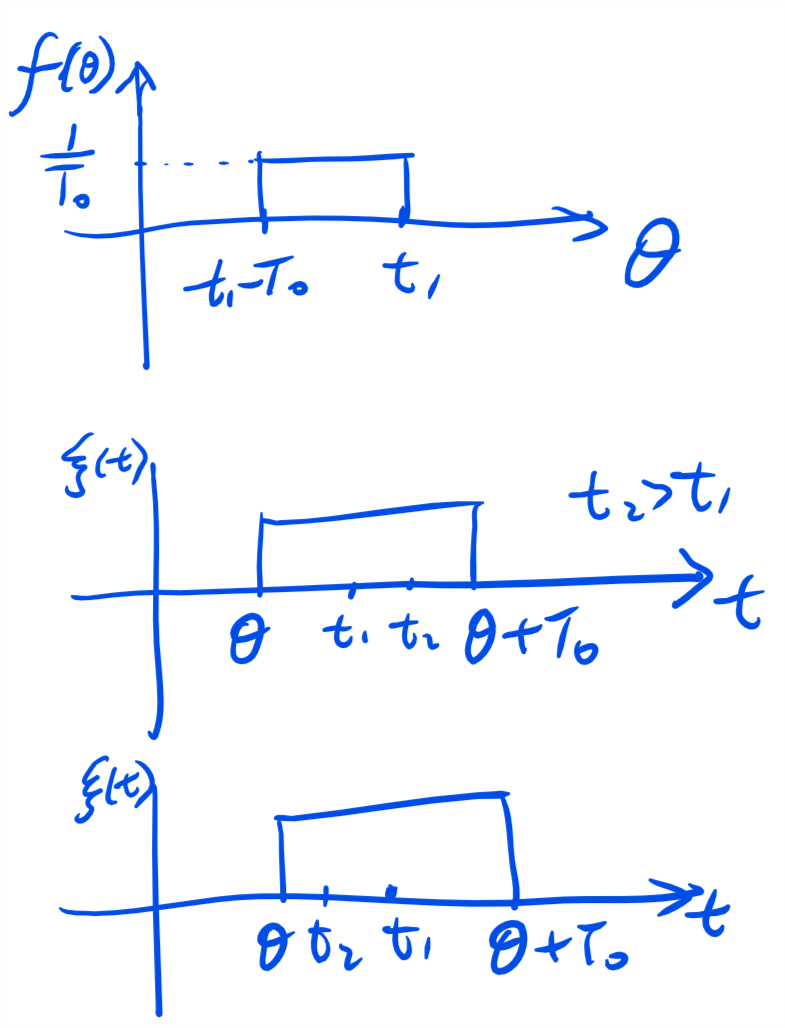 f(θ)
1/T₀
t₁-T₀ t₁
θ
ξ(t)
t₂>t₁
θ t₁ t₂ θ+T₀
t
ξ(t)
θ t₂ t₁ θ+T₀
t